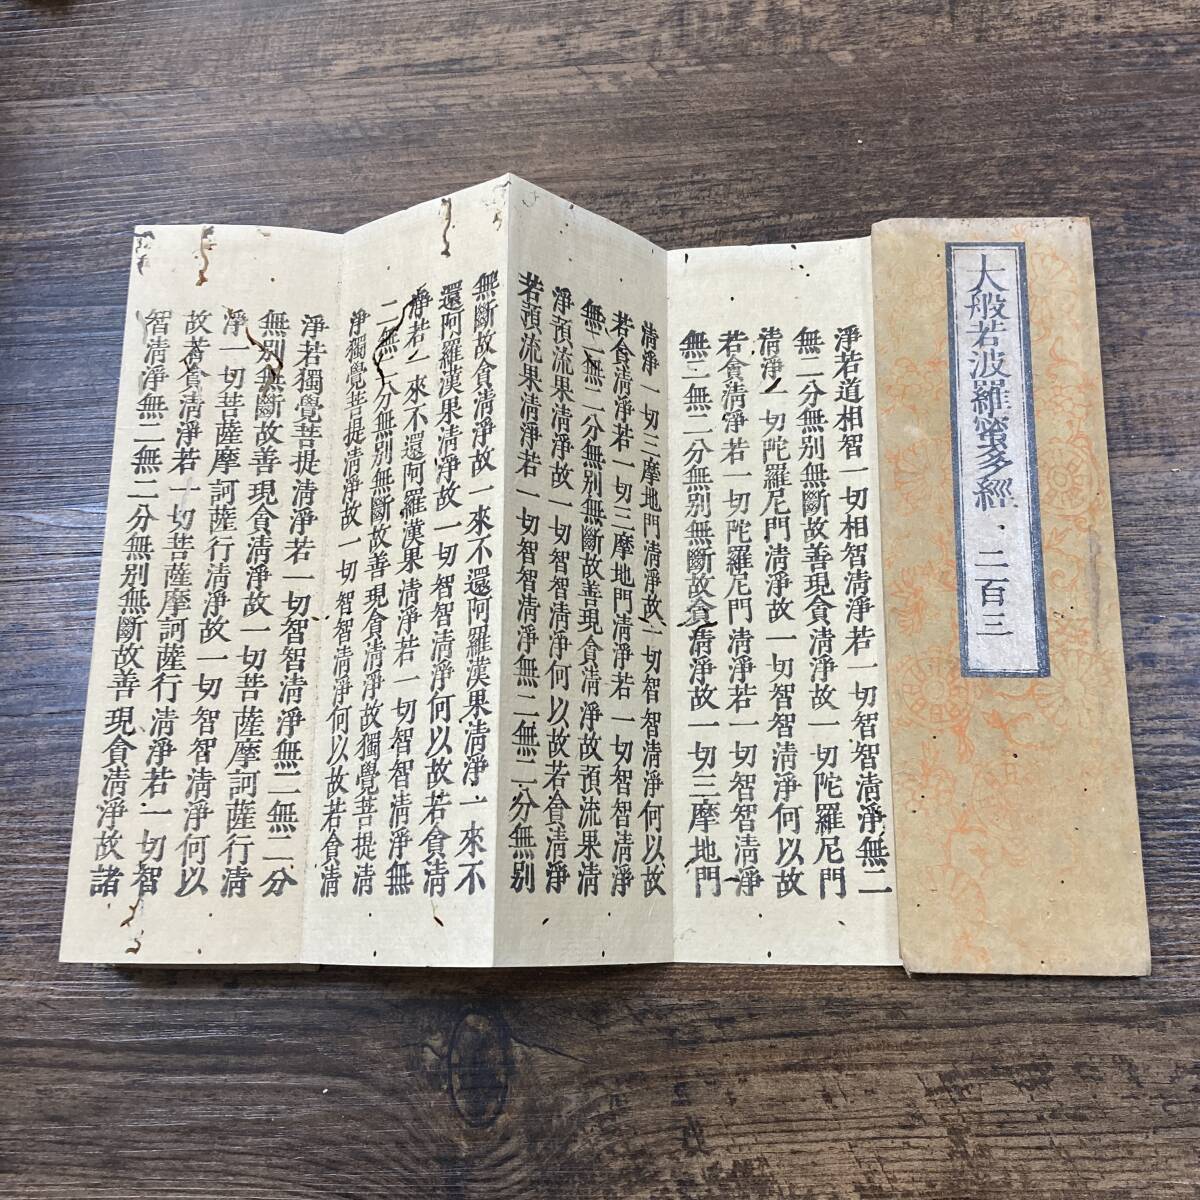 大般若波羅蜜多經、二百三
淨若道相智一切相智清淨若一切智智清淨無二
無二分無別無斷故善現貪清淨故一切陀羅尼門
清淨一切陀羅尼門清淨故一切智智清淨何以故
若貪清淨若一切陀羅尼門清淨若一切智智清淨
無二無二分無別無斷故貪清淨故一切三摩地門
清淨一切三摩地門清淨故一切智智清淨何以故
若貪清淨若一切三摩地門清淨若一切智智清淨
無二無二分無別無斷故善現貪清淨故預流果清
淨預流果清淨故一切智智清淨何以故若貪清淨
若預流果清淨若一切智智清淨無二無二分無別
無斷故貪清淨故一來不還阿羅漢果清淨一來不
還阿羅漢果清淨故一切智智清淨何以故若貪清
淨若一來不還阿羅漢果清淨若一切智智清淨無
二無二分無別無斷故善現貪清淨故獨覺菩提清
淨獨覺菩提清淨故一切智智清淨何以故若貪清
淨若獨覺菩提清淨若一切智智清淨無二無二分
無別無斷故善現貪清淨故一切菩薩摩訶薩行清
淨一切菩薩摩訶薩行清淨故一切智智清淨何以
故若貪清淨若一切菩薩摩訶薩行清淨若一切智
智清淨無二無二分無別無斷故善現貪清淨故諸